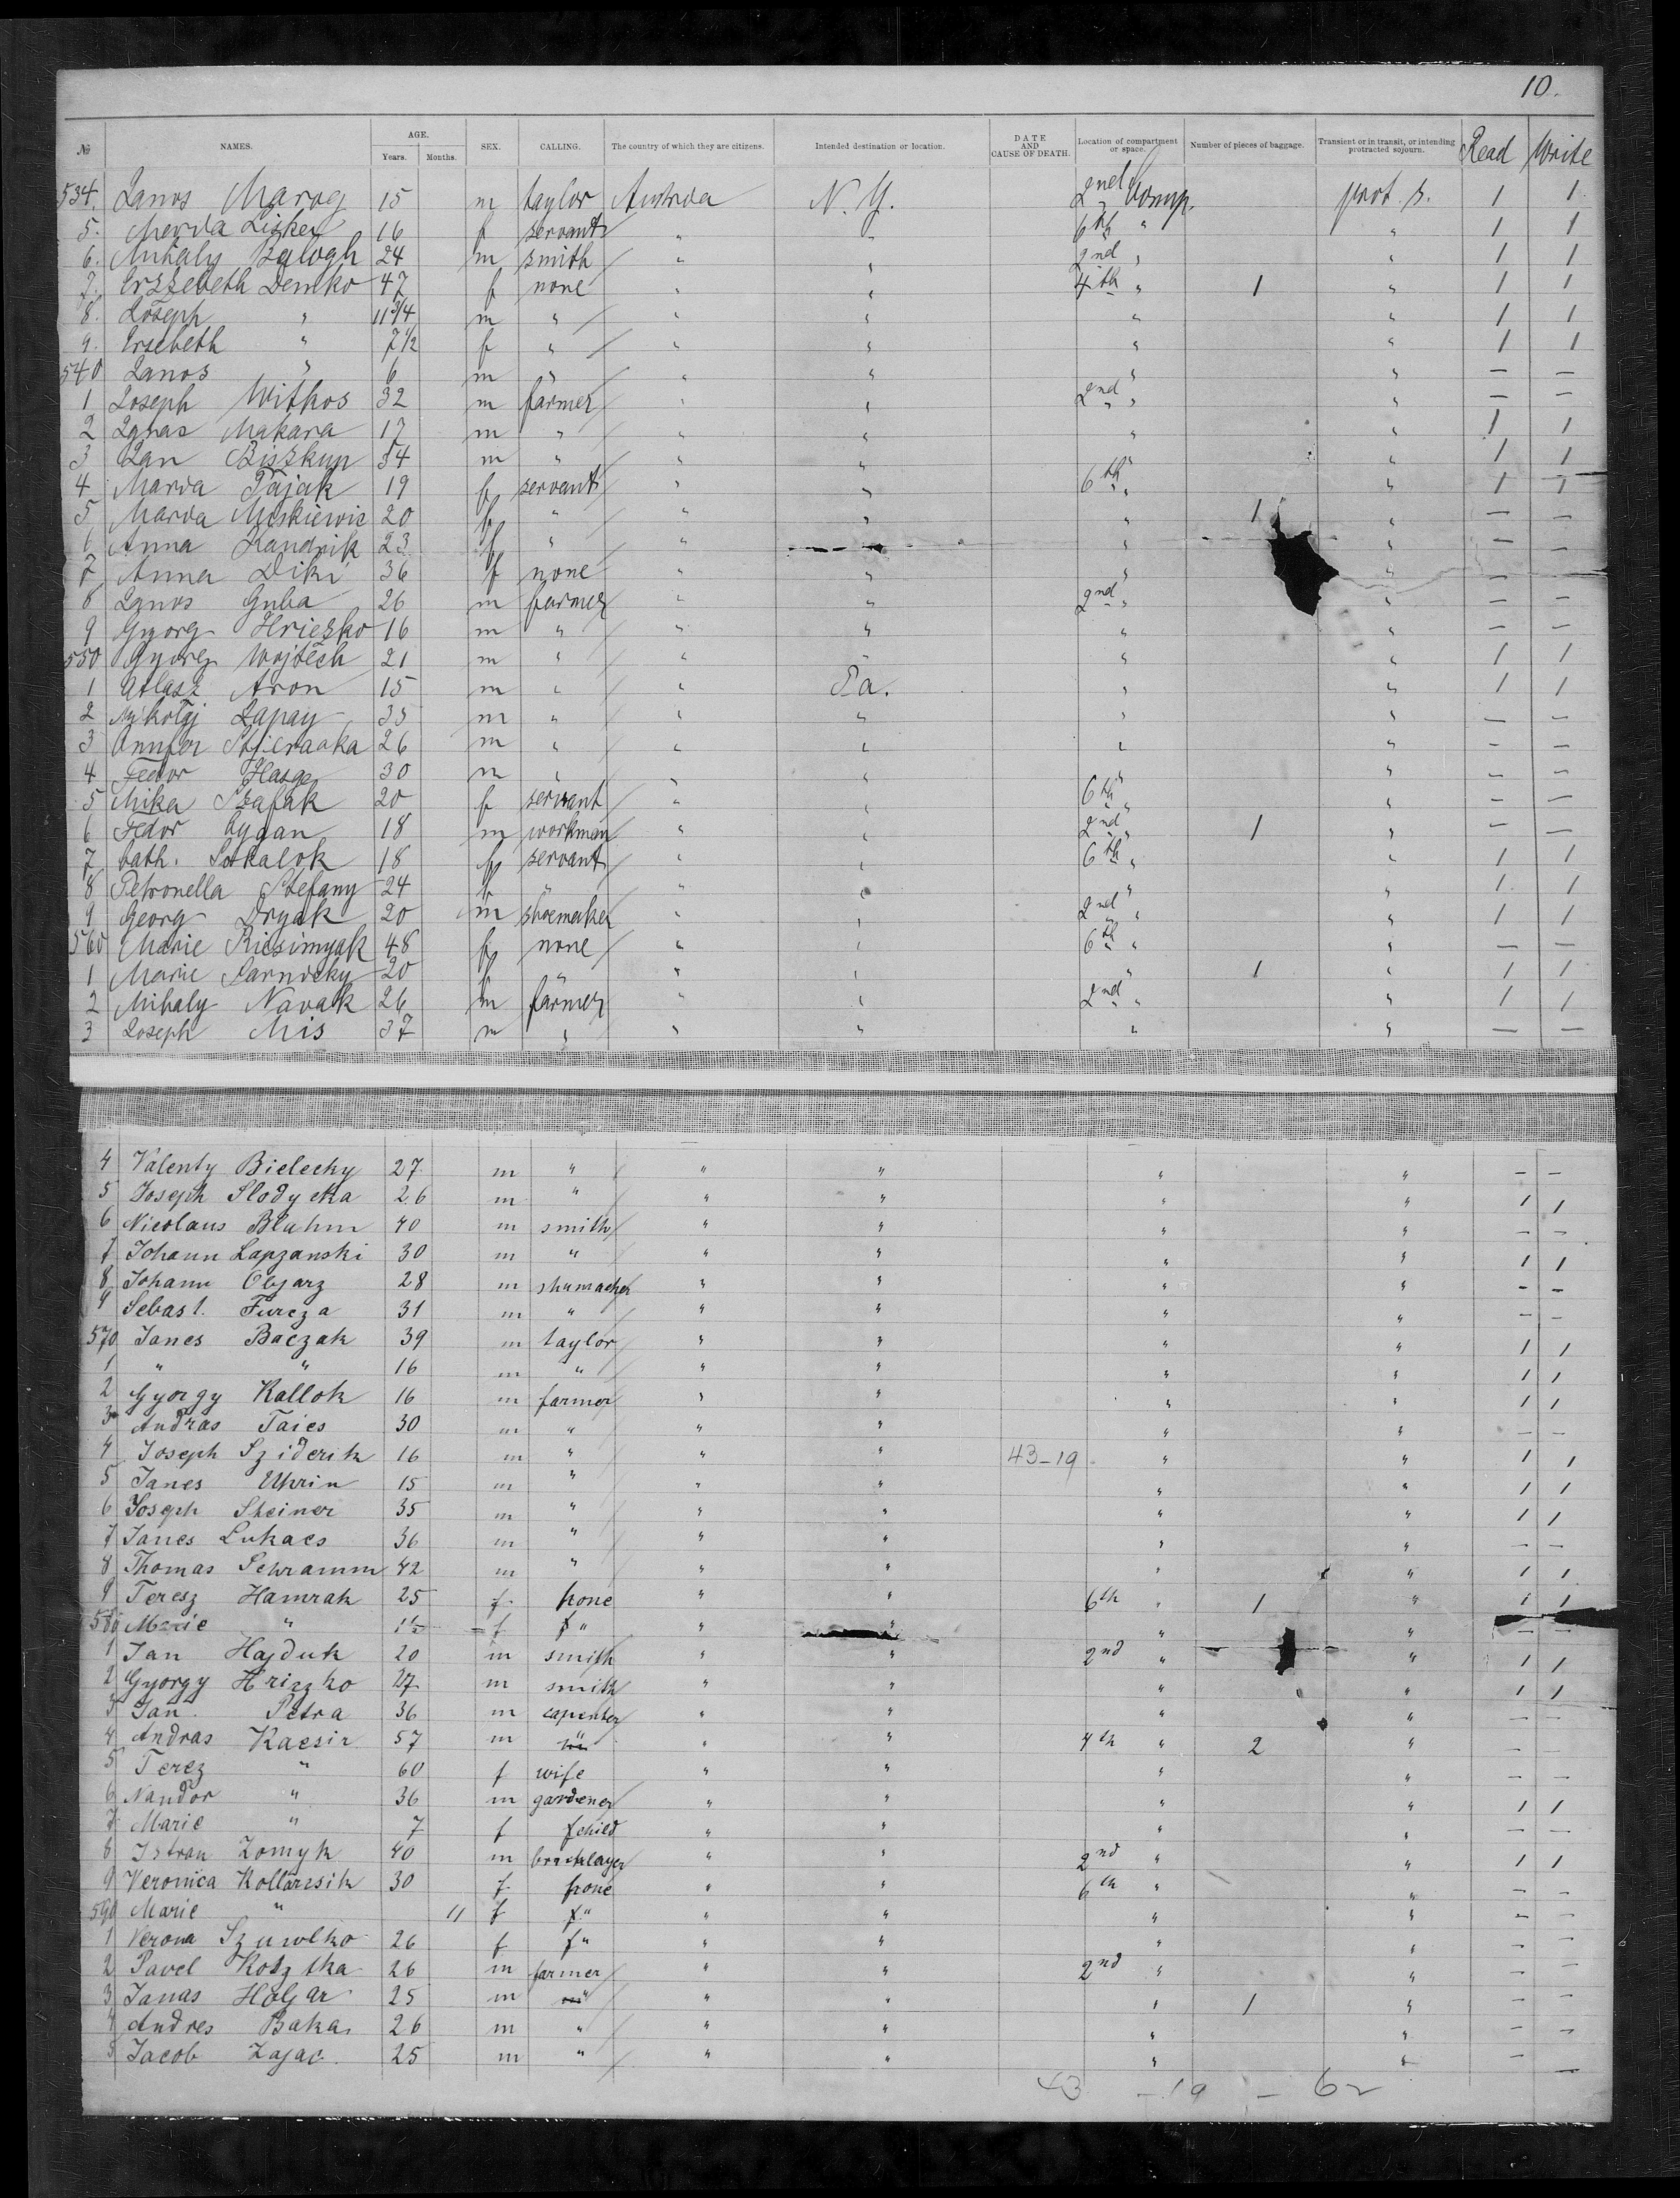 10.
No NAMES. AGE. Years. Months. SEX. CALLING. The country of which they are citizens. Intended destination or location. DATE AND CAUSE OF DEATH. Location of compartment or space. Number of pieces of baggage. Transient or in transit, or intending protracted sojourn. Read Write
534. Janos Marog 15 m taylor Austria N. Y. 2nd Comp. prot. s. 1 1
5. Lisker 16 f servant " " 6th " " 1 1
6. Mihaly Balogh 24 m smith " " 2nd " " 1 1
7. Erzsebeth Demko 47 f none " " 4th " 1 " 1 1
8. Joseph " 11 3/4 m " " " " " 1 1
9. Ersebeth " 7 1/2 f " " " " " 1 1
540 Janos " 6 m " " " " " — —
1 Joseph Witkos 32 m farmer " " 2nd " " — —
2 Makara 17 m " " " " " 1 1
3 Jan Biszkup 34 m " " " " " 1 1
4 Maria Pajak 19 f servant " " 6th " " 1 1
5 Maria Miskiewic 20 f " " " " 1 " — —
6 Anna Kandrik 23 f " " " " " — —
7 Anna Diki 36 f none " " " " — —
8 Janos Guba 26 m farmer " " 2nd " " — —
9 Gyorg Hriczko 16 m " " " " " — —
550 Gyorg Wojtech 21 m " " " " " 1 1
1 Atlasz Aron 15 m " " Pa. " " 1 1
2 Mikolaj Lapay 35 m " " " " " — —
3 26 m " " " " " — —
4 Fedor 30 m " " " " " — —
5 Mika Szafak 20 f servant " " 6th " " — —
6 Fedor Cygan 18 m workman " " 2nd " 1 " — —
7 Cath. Sokalok 18 f servant " " 6th " " 1 1
8 Petronella Stefany 24 f " " " " " 1 1
9 Georg Dryak 20 m shoemaker " " 2nd " " 1 1
560 Marie 48 f none " " 6th " " — —
1 Marie 20 f " " " " 1 " 1 1
2 Mihaly Navak 26 m farmer " " 2nd " " 1 1
3 Joseph Mis 37 m " " " " " — —
4 Valenty Bielecky 27 m " " " " " — —
5 Joseph Slodycka 26 m " " " " " 1 1
6 Nicolaus Blahm 40 m smith " " " " — —
7 Johann Lapzanski 30 m " " " " " 1 1
8 Johann Olyarz 28 m shumacher " " " " — —
9 Sebast. Furcza 31 m " " " " " — —
570 Janes Baczak 39 m taylor " " " " 1 1
1 " " 16 m " " " " " 1 1
2 Gyorgy Kallok 16 m farmer " " " " 1 1
3 Andras Taics 30 m " " " " " — —
4 Joseph Sziderik 16 m " " " 43-19 " " 1 1
5 Janes Uhrin 15 m " " " " " 1 1
6 Joseph Steiner 35 m " " " " " 1 1
7 Janes Lukacs 36 m " " " " " — —
8 Thomas Schramm 42 m " " " " " 1 1
9 Teresz Hamrak 25 f none " " 6th " 1 " 1 1
580 Marie " 1 1/2 f " " " " " — —
1 Jan Hajduk 20 m smith " " 2nd " " 1 1
2 Gyorgy Hrizzko 27 m smith " " " " 1 1
3 Jan Petra 36 m capenter " " " " — —
4 Andras Kacsir 57 m " " " 4th " 2 " — —
5 Terez " 60 f wife " " " " — —
6 Nandor " 36 m gardener " " " " 1 1
7 Marie " 7 f child " " " " — —
8 Istvan Zomyk 40 m bricklayer " " 2nd " " 1 1
9 Veronica Kollarcsik 30 f none " " 6th " " — —
590 Marie " 11 f " " " " " — —
1 Verona Szuwlko 26 f " " " " " — —
2 Pavel Kosztka 26 m farmer " " 2nd " " — —
3 Janas Holjar 25 m " " " " 1 " — —
4 Andres Baka 26 m " " " " " — —
5 Jacob Zajac 25 m " " " " " — —
43 - 19 - 62